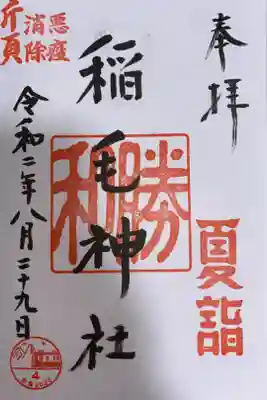 奉拝
夏詣
稲毛神社
勝利
悪疫
消除
祈願
令和二年八月二十九日